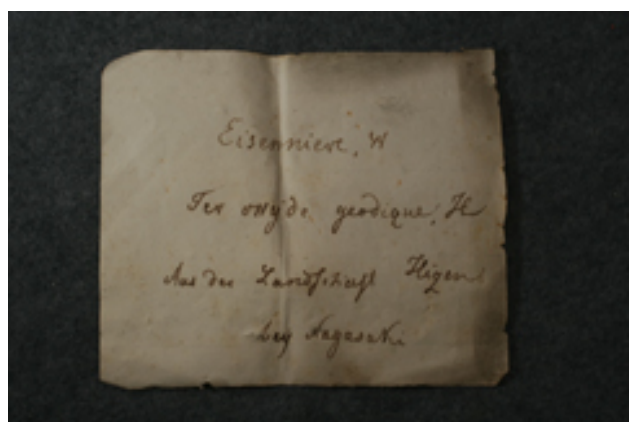 Eisenniere, W
Fer oxydé geodique, H
Aus der Landschaft Higen
bey Nagasaki